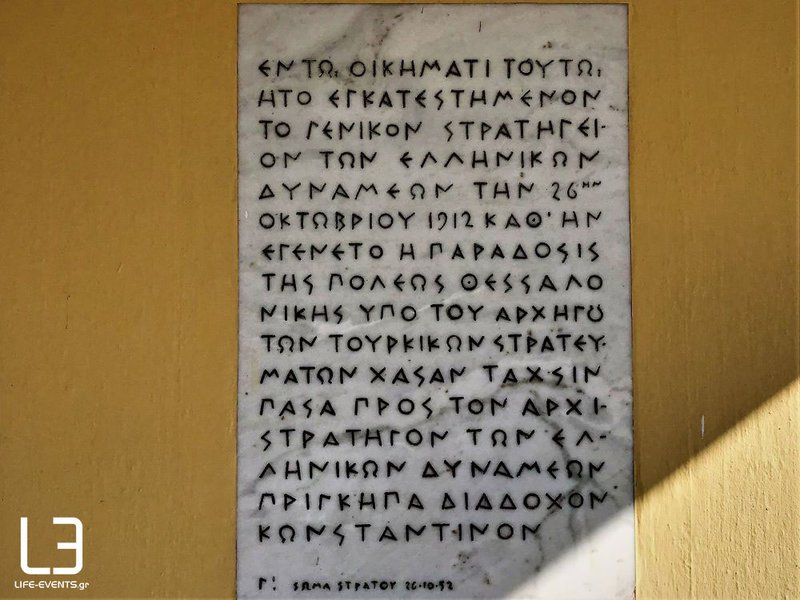 ΕΝ ΤΩ, ΟΙΚΗΜΑΤΙ ΤΟΥΤΩ,
ΗΤΟ ΕΓΚΑΤΕΣΤΗΜΕΝΟΝ
ΤΟ ΓΕΝΙΚΟΝ ΣΤΡΑΤΗΓΕΙ-
ΟΝ ΤΩΝ ΕΛΛΗΝΙΚΩΝ
ΔΥΝΑΜΕΩΝ ΤΗΝ 26ΗΝ
ΟΚΤΩΒΡΙΟΥ 1912 ΚΑΘ' ΗΝ
ΕΓΕΝΕΤΟ Η ΠΑΡΑΔΟΣΙΣ
ΤΗΣ ΠΟΛΕΩΣ ΘΕΣΣΑΛΟ
ΝΙΚΗΣ ΥΠΟ ΤΟΥ ΑΡΧΗΓȢ
ΤΩΝ ΤΟΥΡΚΙΚΩΝ ΣΤΡΑΤΕΥ-
ΜΑΤΩΝ ΧΑΣΑΝ ΤΑΧΣΙΝ
ΠΑΣΑ ΠΡΟΣ ΤΟΝ ΑΡΧΙ-
ΣΤΡΑΤΗΓΟΝ ΤΩΝ ΕΛ-
ΛΗΝΙΚΩΝ ΔΥΝΑΜΕΩΝ
ΠΡΙΓΚΗΠΑ ΔΙΑΔΟΧΟΝ
ΚΩΝΣΤΑΝΤΙΝΟΝ
Γ' ΣΩΜΑ ΣΤΡΑΤΟΥ 26·10·52
LE
LIFE-EVENTS.gr